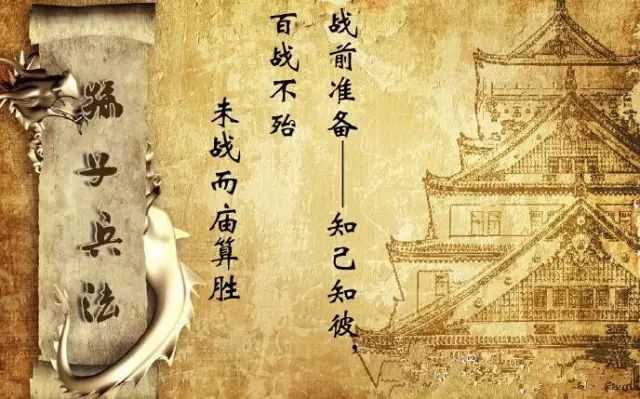 战前准备——知己知彼，
百战不殆
未战而庙算胜
孙子兵法